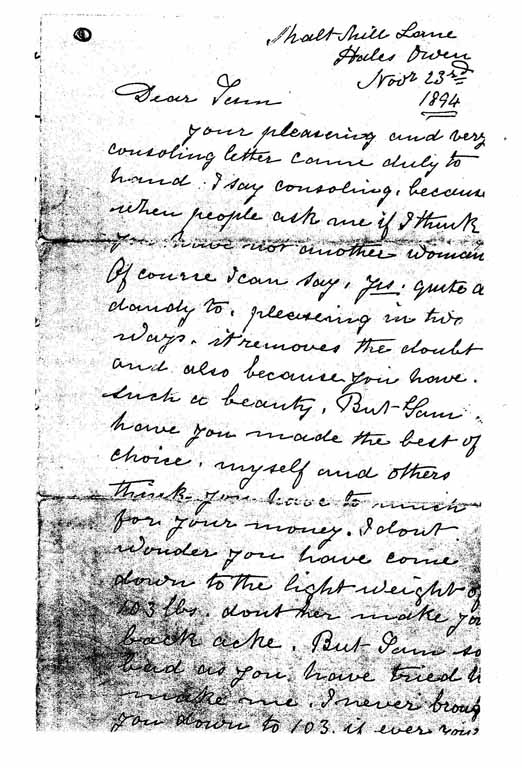 Malt Mill Lane
Hales Owen
Novr 23rd
1894
Dear Sam
your pleasering and very
consoling letter came duly to
hand. I say consoling, because
when people ask me if I think
you have not another woman
Of course I can say, yes, quite a
dandy to, pleasering in two
ways, it removes the doubt
and also because you have
such a beauty, But Sam
have you made the best of
choice, myself and others
think you have to much
for your money. I dont
wonder you have come
down to the light weight of
103 lbs. dont her make your
back acke, But Sam so
bad as you have tried
make me, I never
you down to 103. is ever